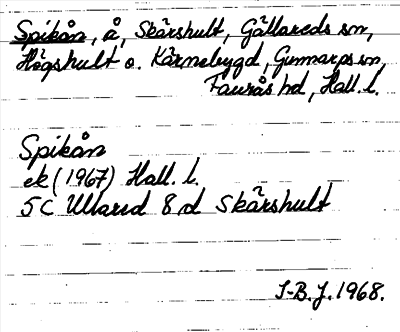 Spikån, å, Skärshult, Gällareds sn,
Högshult o. Kärnebygd, Gunnarps sn,
Faurås hd, Hall. l.
Spikån
ek (1967) Hall. l.
5C Ullared 8 d Skärshult
I-B. J. 1968.